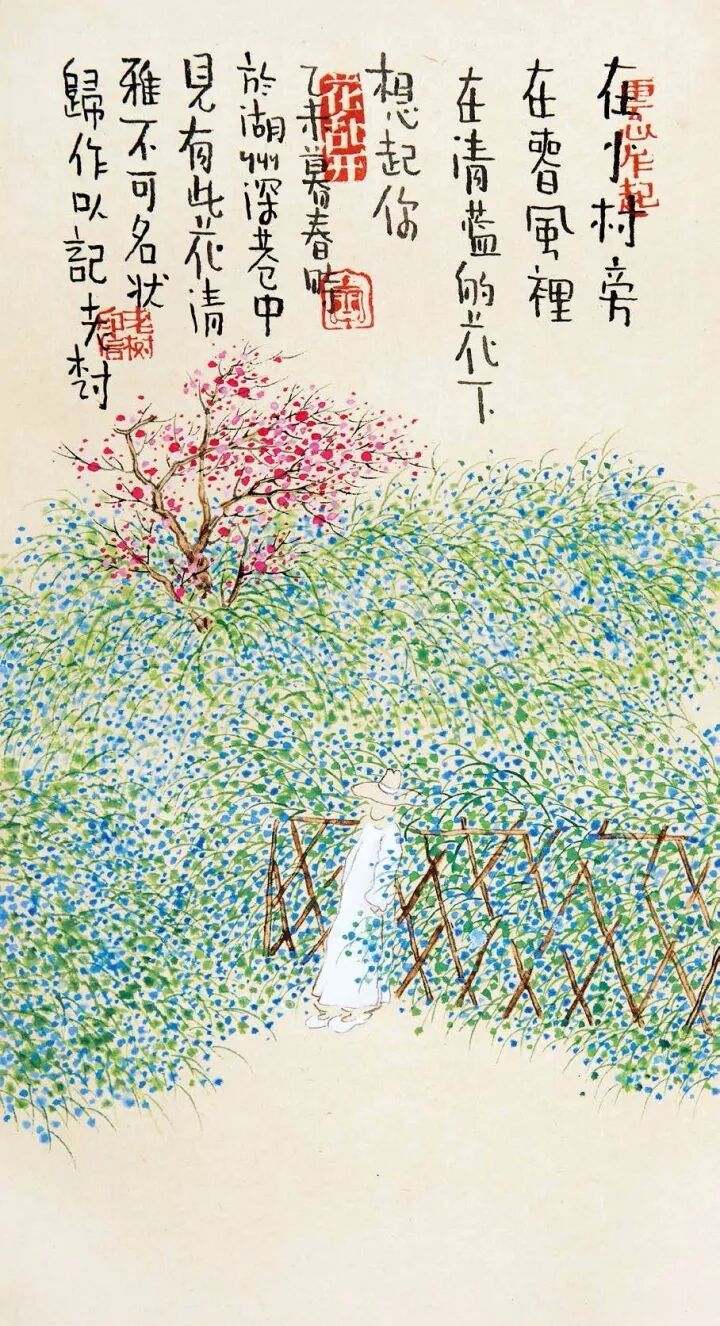 在小村旁
在春風裡
在清藍的花下
想起你
乙未暮春時
於湖州深巷中
見有此花清
雅不可名狀
歸作以記 老树
花乱开
老树
印信